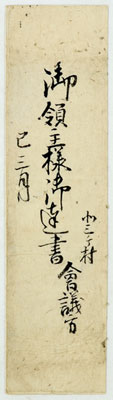 御領主様御達書
會議写
巳三月
小三ケ村